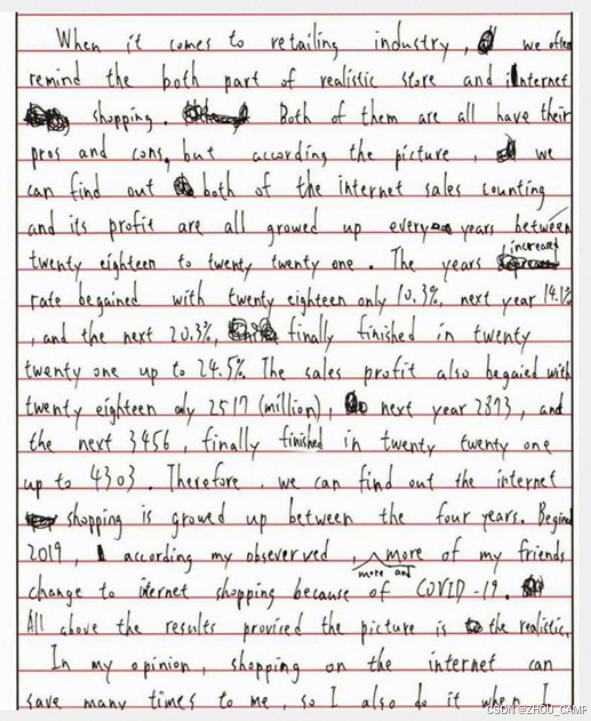 When it comes to retailing industry, we often
remind the both part of realistic store and internet
shopping. Both of them are all have their
pros and cons, but according the picture, we
can find out both of the internet sales counting
and its profit are all growed up every years between
twenty eighteen to twenty twenty one. The years increased
rate begained with twenty eighteen only 10.3%, next year 14.1%
, and the next 20.3%, finally finished in twenty
twenty one up to 24.5%. The sales profit also begaied with
twenty eighteen only 2517 (million), next year 2893, and
the next 3456, finally finished in twenty twenty one
up to 4303. Therefore, we can find out the internet
shopping is growed up between the four years. Begind
2019, according my observerved, more and more of my friends
change to internet shopping because of COVID-19.
All above the results proviced the picture is the realistic.
In my opinion, shopping on the internet can
save many times to me, so I also do it when I
CSDN @ZHOU_CAMP